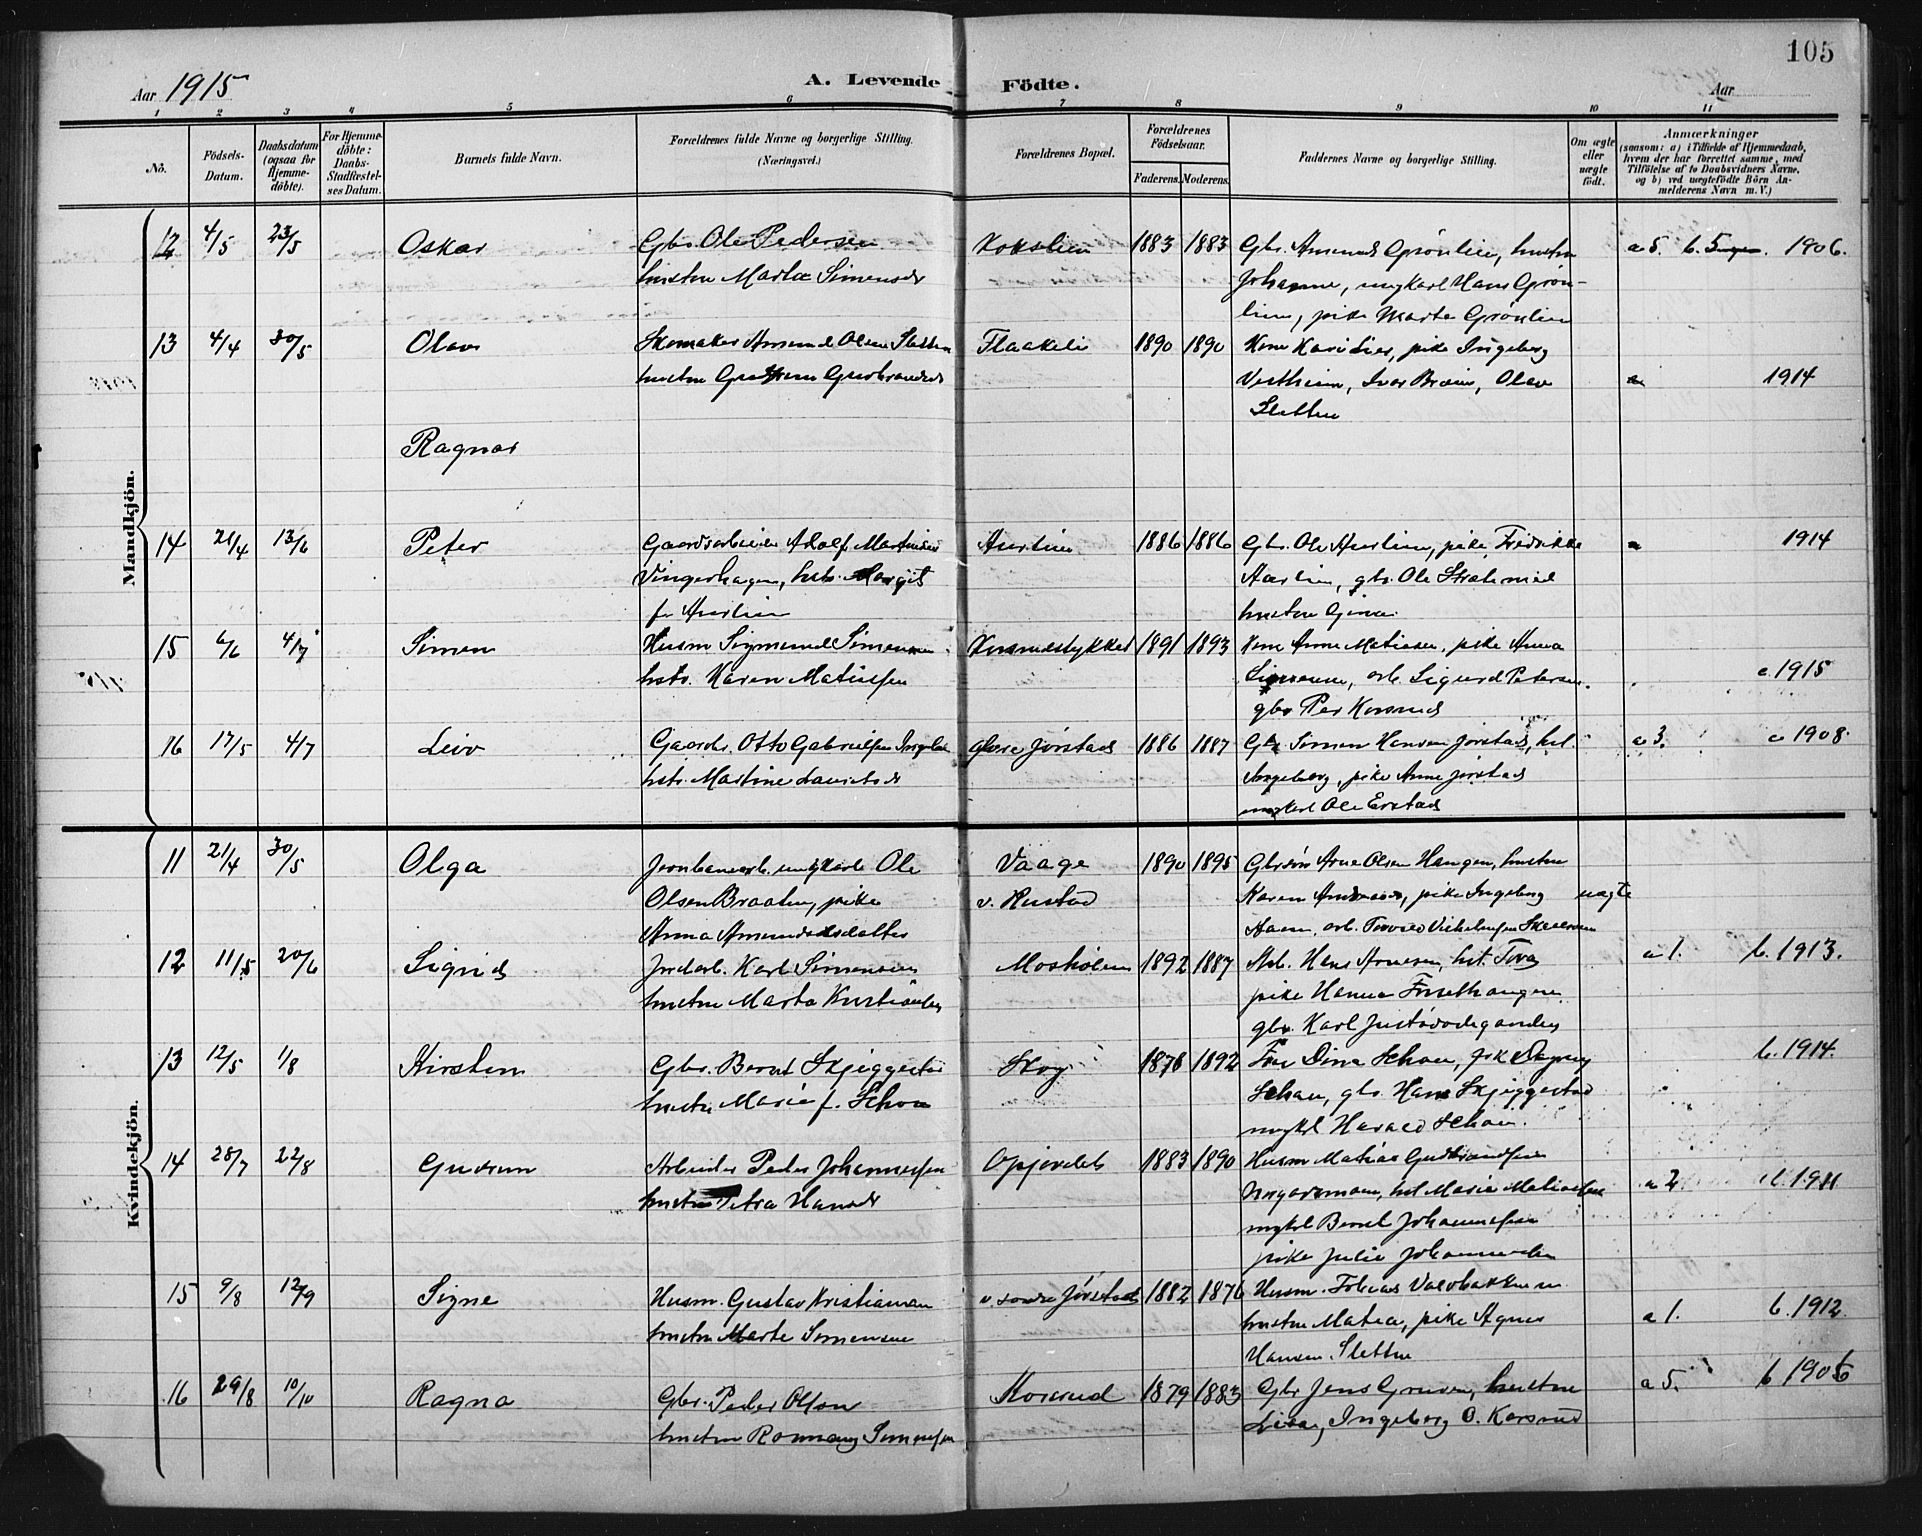 105
Aar 1915 A. Levende Födte. Aar
1 2 3 4 5 6 7 8 9 10 11
No. Födsels-Datum. Daabsdatum (ogsaa for Hjemmedöbte). For Hjemmedöbte: Daabs-Stadfæstelses Datum. Barnets fulde Navn. Forældrenes fulde Navne og borgerlige Stilling. (Næringsvei.) Forældrenes Bopæl. Forældrenes Födselsaar. Faderens. Moderens. Faddernes Navne og borgerlige Stilling. Om ægte eller uægte födt. Anmærkninger (saasom: a) i Tilfælde af Hjemmedaab, hvem der har forrettet samme, med Tilföielse af to Daabsvidners Navne, og b) ved uægtefödte Börn Anmelderens Navn m. V.)
Mandkjön.
12 4/5 23/5 Oskar Gbr. Ole Pedersen Kokslien 1883 1883 Gbr. Amund Grönlien, hustru a 5. b. 1906.
hustru Marta Simensdr Johanne, ungkarl Hans Grön-
lien, pike Marte Grönlien
13 4/4 30/5 Olav Skomaker Amund Olsen Sletten Flaakeli 1890 1890 Kone Kari Lier, pike Ingeborg
hustru Gudbrandsd Vestheim, Ivar Braein, Olav 1914
Sletten
Ragnar
14 21/4 13/6 Peter Gaardsarbeider Adolf Martinsen Aurlien 1886 1886 Gbr. Ole Aurlien, pike Fredrikke 1914
Vingerhagen, hustr. Margit Aurlien, gbr. Ole
f. Aurlien hustru Gina
15 6/6 4/7 Simen Husm Sigmund Simensen 1891 1893 Kone Anne Matiasen, pike Anna
hstr. Karen Matiassen Simensen, arb. Sigurd Petersen. 1915
gbr Per Korsrud
16 17/5 4/7 Leiv Gaardbr. Otto Gabrielsen övre Jörstad 1886 1887 Gbr Simen Hansen Jörstad, hst. a 3. 1908
hstr. Martine Lauritsdr Ingeborg, pike Anne Jörstad
ungkarl Ole Erstad
Kvindekjön.
11 21/4 30/5 Olga Jernbanearb. ungkarl Ole Vaage 1890 1895 Gbrsön Arne Olsen Haugen, hustru
Olsen Braaten, pike v. Rustad Karen pike Ingeborg uægte
Anna Amundsdatter
12 11/5 20/6 Sigrid Jordarb. Karl Simensen Mosholen 1892 1887 Arb. Hans Arnesen, hst. Tora, a 1. b. 1913.
hustru Marta pike Hanna
gbr. Karl
13 12/5 1/8 Kirsten Gbr. Bernt Skjeggestad Skog 1878 1892 Fru Dina Schou, pike Dagny b. 1914.
hustru Marie f. Schou Schou, gbr. Hans Skjeggestad
ungkl Harald Schou.
14 28/7 22/8 Gudrun Arbeider Peder Johannessen 1883 1890 Husm Matias Gudbrandsen
hustru Petra Hansdr hst Marie Matiassen a 2 1911
ungkl Bernt Johannessen
pike Julie Johannesdr
15 9/8 12/9 Signe Husm. Gustav Kristiansen v. söndre Jörstad 1882 1876 Husm. Tobias
hustru Marte Simensen hustru Matea, pike Agnes a 1. b. 1912
Hansen Sletten
16 29/8 10/10 Ragna Gbr. Peder Olsen Korsrud 1879 1883 Gbr Jens hustru a 5. b 1906
hustru Simensen Lisa, Ingeborg O. Korsrud